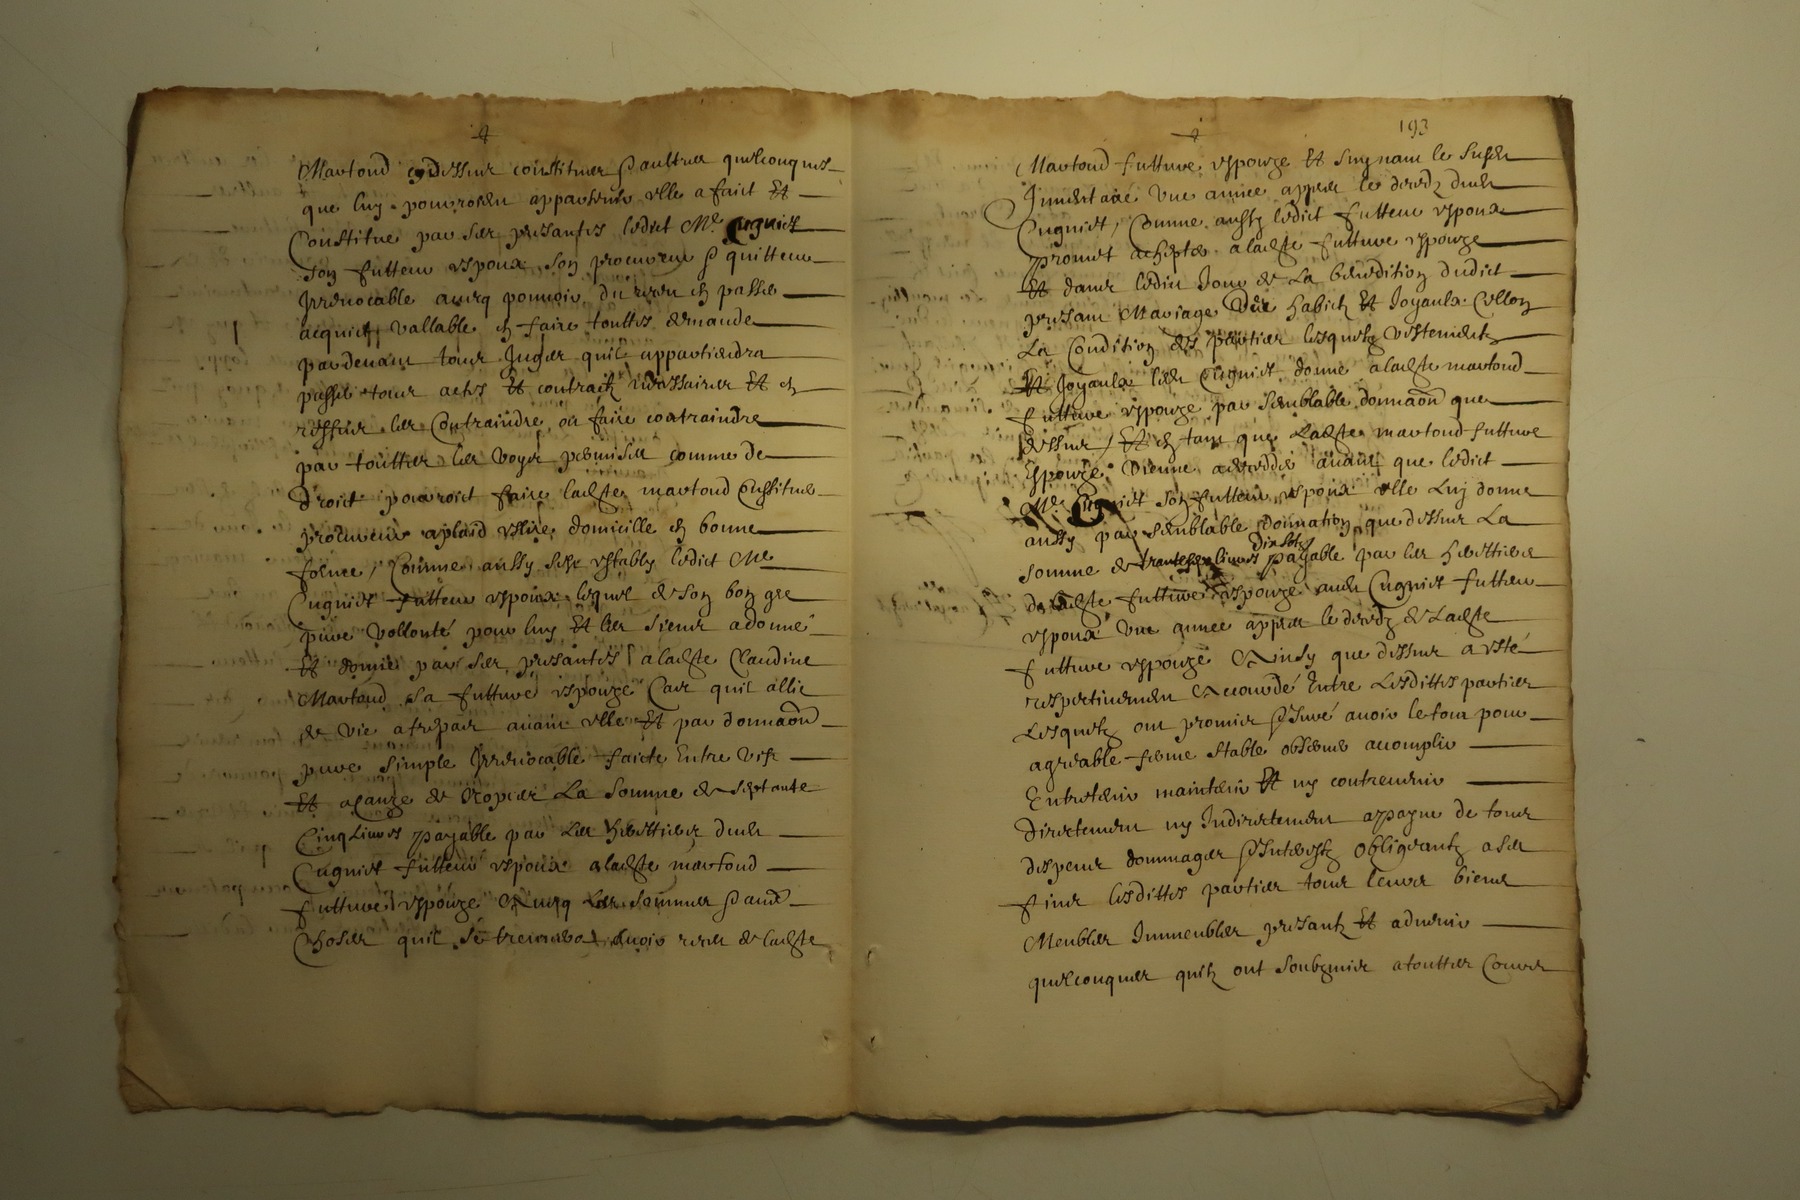 Martoud cydessus constitues & aultres quelconques
que luy pourroient appartenir elle a faict et
Constitue par ses presantes ledict Me Cugniet
son futteur espoux son procureur & quitteur
Irrevocable avecq pouvoir du receu en passer
acquict vallable en faire touttes demande
pardevant tous Juges quil appartiendra
passer tous actes et contraictz necessaires et en
reffus les Contraindre ou faire contraindre
par touttes les voyes permises comme de
droict pourroict faire ladicte martoud Constitue
procureur a plaid eslire domicille en bonne
forme / Comme aussy sest estably ledict Me
Cugniet futteur espoux lequel de son bon gre
pure vollonté pour luy et les siens a donné
et donne par ses presantes a ladicte Claudine
Martoud sa futture espouze Cas quil allie
de vie a trepas avant elle et par donnaōn
pure simple Irrevocable faicte Entre vifz
Et a cauze de Nopces La somme de septante
Cinq Livres payable par Les herettiers dudt
Cugniet futteur espoux a ladicte martoud
futture espouze Avecq Les sommes & autres
Choses quil se treuvera avoir receu de ladicte
193
Martoud futture espouze et suyvant le susdt
Inventaire Une annee appres le decedz dudt
Cugniet / Comme aussy ledict futteur espoux
promet achepter a ladicte futture espouze
Et dans ledict Jour de La benedition dudict
presant Mariage des habictz Et Joyaulx Cellon
La Condition des parties lesquelz vestementz
Et Joyaulx ledt Cugniet donne a ladicte martoud
futture espouze par semblable donnaōn que
dessus / Et en tant que Ladicte martoud futture
Espouze Vienne a deceddé avant que ledict
Me Cugniet son futteur espoux elle Luy donne
aussy par semblable donnation que dessus La
somme de trante sept livres dix solz payable par les herettiers
de ladicte futture espouze audt Cugniet futteur
espoux Une annee appres le decedz de Ladicte
futture espouze Ainsy que dessus a esté
respectivement Accourdé Entre Lesdittes parties
Lesquelz ont promis & Juré avoir le tout pour
agreable ferme stable observer accomplir
Entretenir maintenir Et ny contrevenir
directement ny Indirectement a payne de tous
despens dommages & Interestz obligeantz a ses
fins lesdittes parties tous leurs biens
Meubles Immeubles presantz Et advenir
quelconques quilz ont soubzmis a touttes Cours